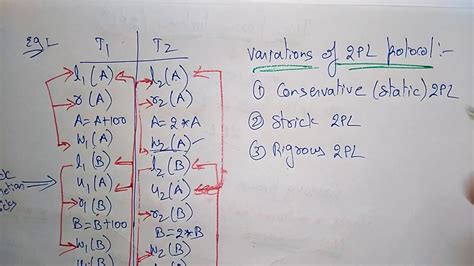 Eg 1
T₁ T₂
l₁(A) l₂(A)
r(A) r₂(A)
A=A+100 A=2*A
w₁(A) w₂(A)
l₁(B) l₂(B)
u₁(A) u₂(A)
r₁(B) r₂(B)
B=B+100 B=2*B
w₁(B) w₂(B)
Variations of 2PL protocol:-
① Conservative (static) 2PL
② Strick 2PL
③ Rigrous 2PL